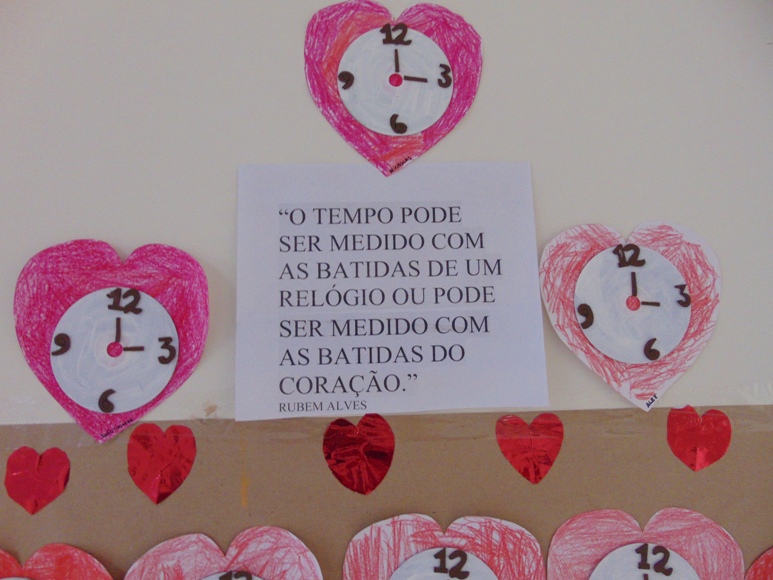 12
3
6
9
"O TEMPO PODE
SER MEDIDO COM
AS BATIDAS DE UM
RELÓGIO OU PODE
SER MEDIDO COM
AS BATIDAS DO
CORAÇÃO."
RUBEM ALVES
12
3
6
9
12
3
6
9
ALEX
12
12
12